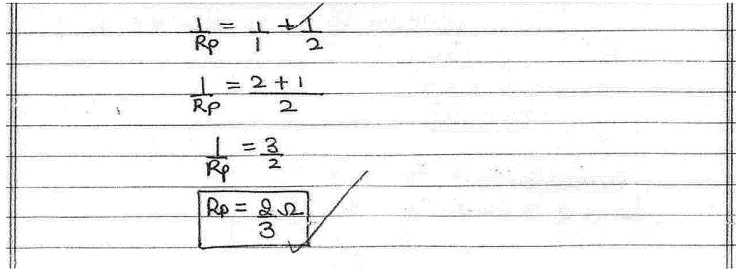 1/Rp = 1/1 + 1/2
1/Rp = 2+1/2
1/Rp = 3/2
Rp = 2/3 Ω